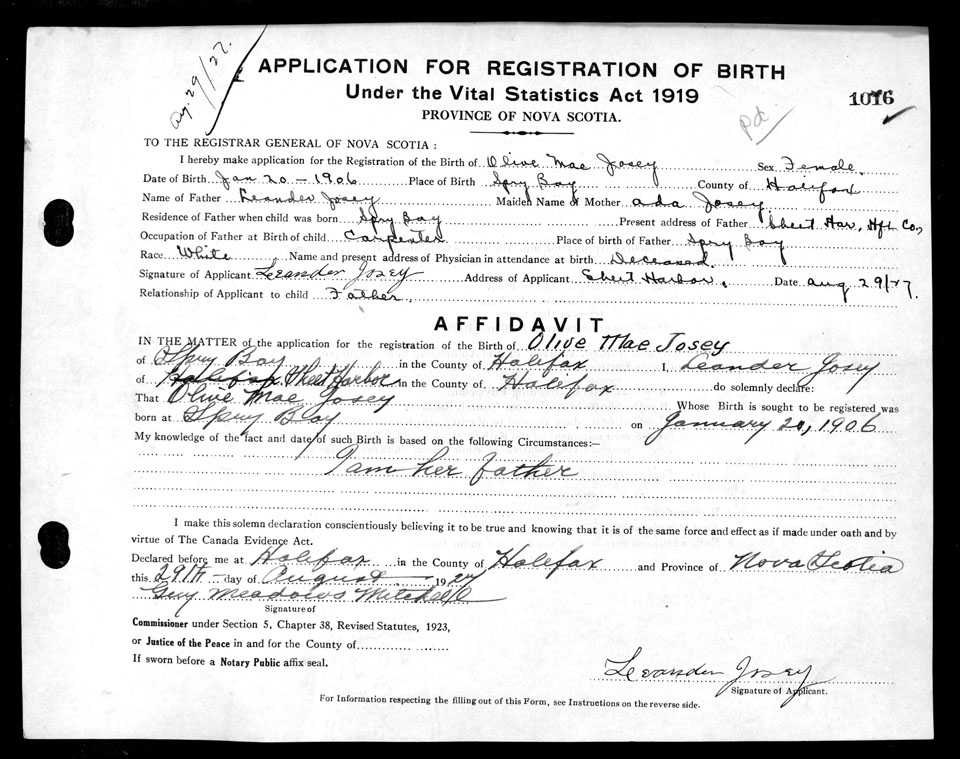 Aug. 29/27.
APPLICATION FOR REGISTRATION OF BIRTH
Under the Vital Statistics Act 1919
PROVINCE OF NOVA SCOTIA.
1076
Pd.
TO THE REGISTRAR GENERAL OF NOVA SCOTIA:
I hereby make application for the Registration of the Birth of Olive Mae Josey Sex Female.
Date of Birth Jan 20 - 1906 Place of Birth Spry Bay County of Halifax
Name of Father Leander Josey Maiden Name of Mother Ada Josey
Residence of Father when child was born Spry Bay Present address of Father Sheet Har, Hfx Co,
Occupation of Father at Birth of child Carpenter Place of birth of Father Spry Bay
Race White Name and present address of Physician in attendance at birth Deceased.
Signature of Applicant Leeander Josey Address of Applicant Sheet Harbor. Date Aug 29/27.
Relationship of Applicant to child Father.
AFFIDAVIT
IN THE MATTER of the application for the registration of the Birth of Olive Mae Josey
of Spry Bay in the County of Halifax I, Leander Josey
of Halifax Sheet Harbor in the County of Halifax do solemnly declare:
That Olive Mae Josey Whose Birth is sought to be registered was
born at Spry Bay on January 20, 1906
My knowledge of the fact and date of such Birth is based on the following Circumstances:—
I am her father
I make this solemn declaration conscientiously believing it to be true and knowing that it is of the same force and effect as if made under oath and by
virtue of The Canada Evidence Act.
Declared before me at Halifax in the County of Halifax and Province of Nova Scotia
this 29th day of August 1927
Guy Meadows Mitchell
Signature of
Commissioner under Section 5, Chapter 38, Revised Statutes, 1923,
or Justice of the Peace in and for the County of
If sworn before a Notary Public affix seal.
Leeander Josey
Signature of Applicant.
For Information respecting the filling out of this Form, see Instructions on the reverse side.